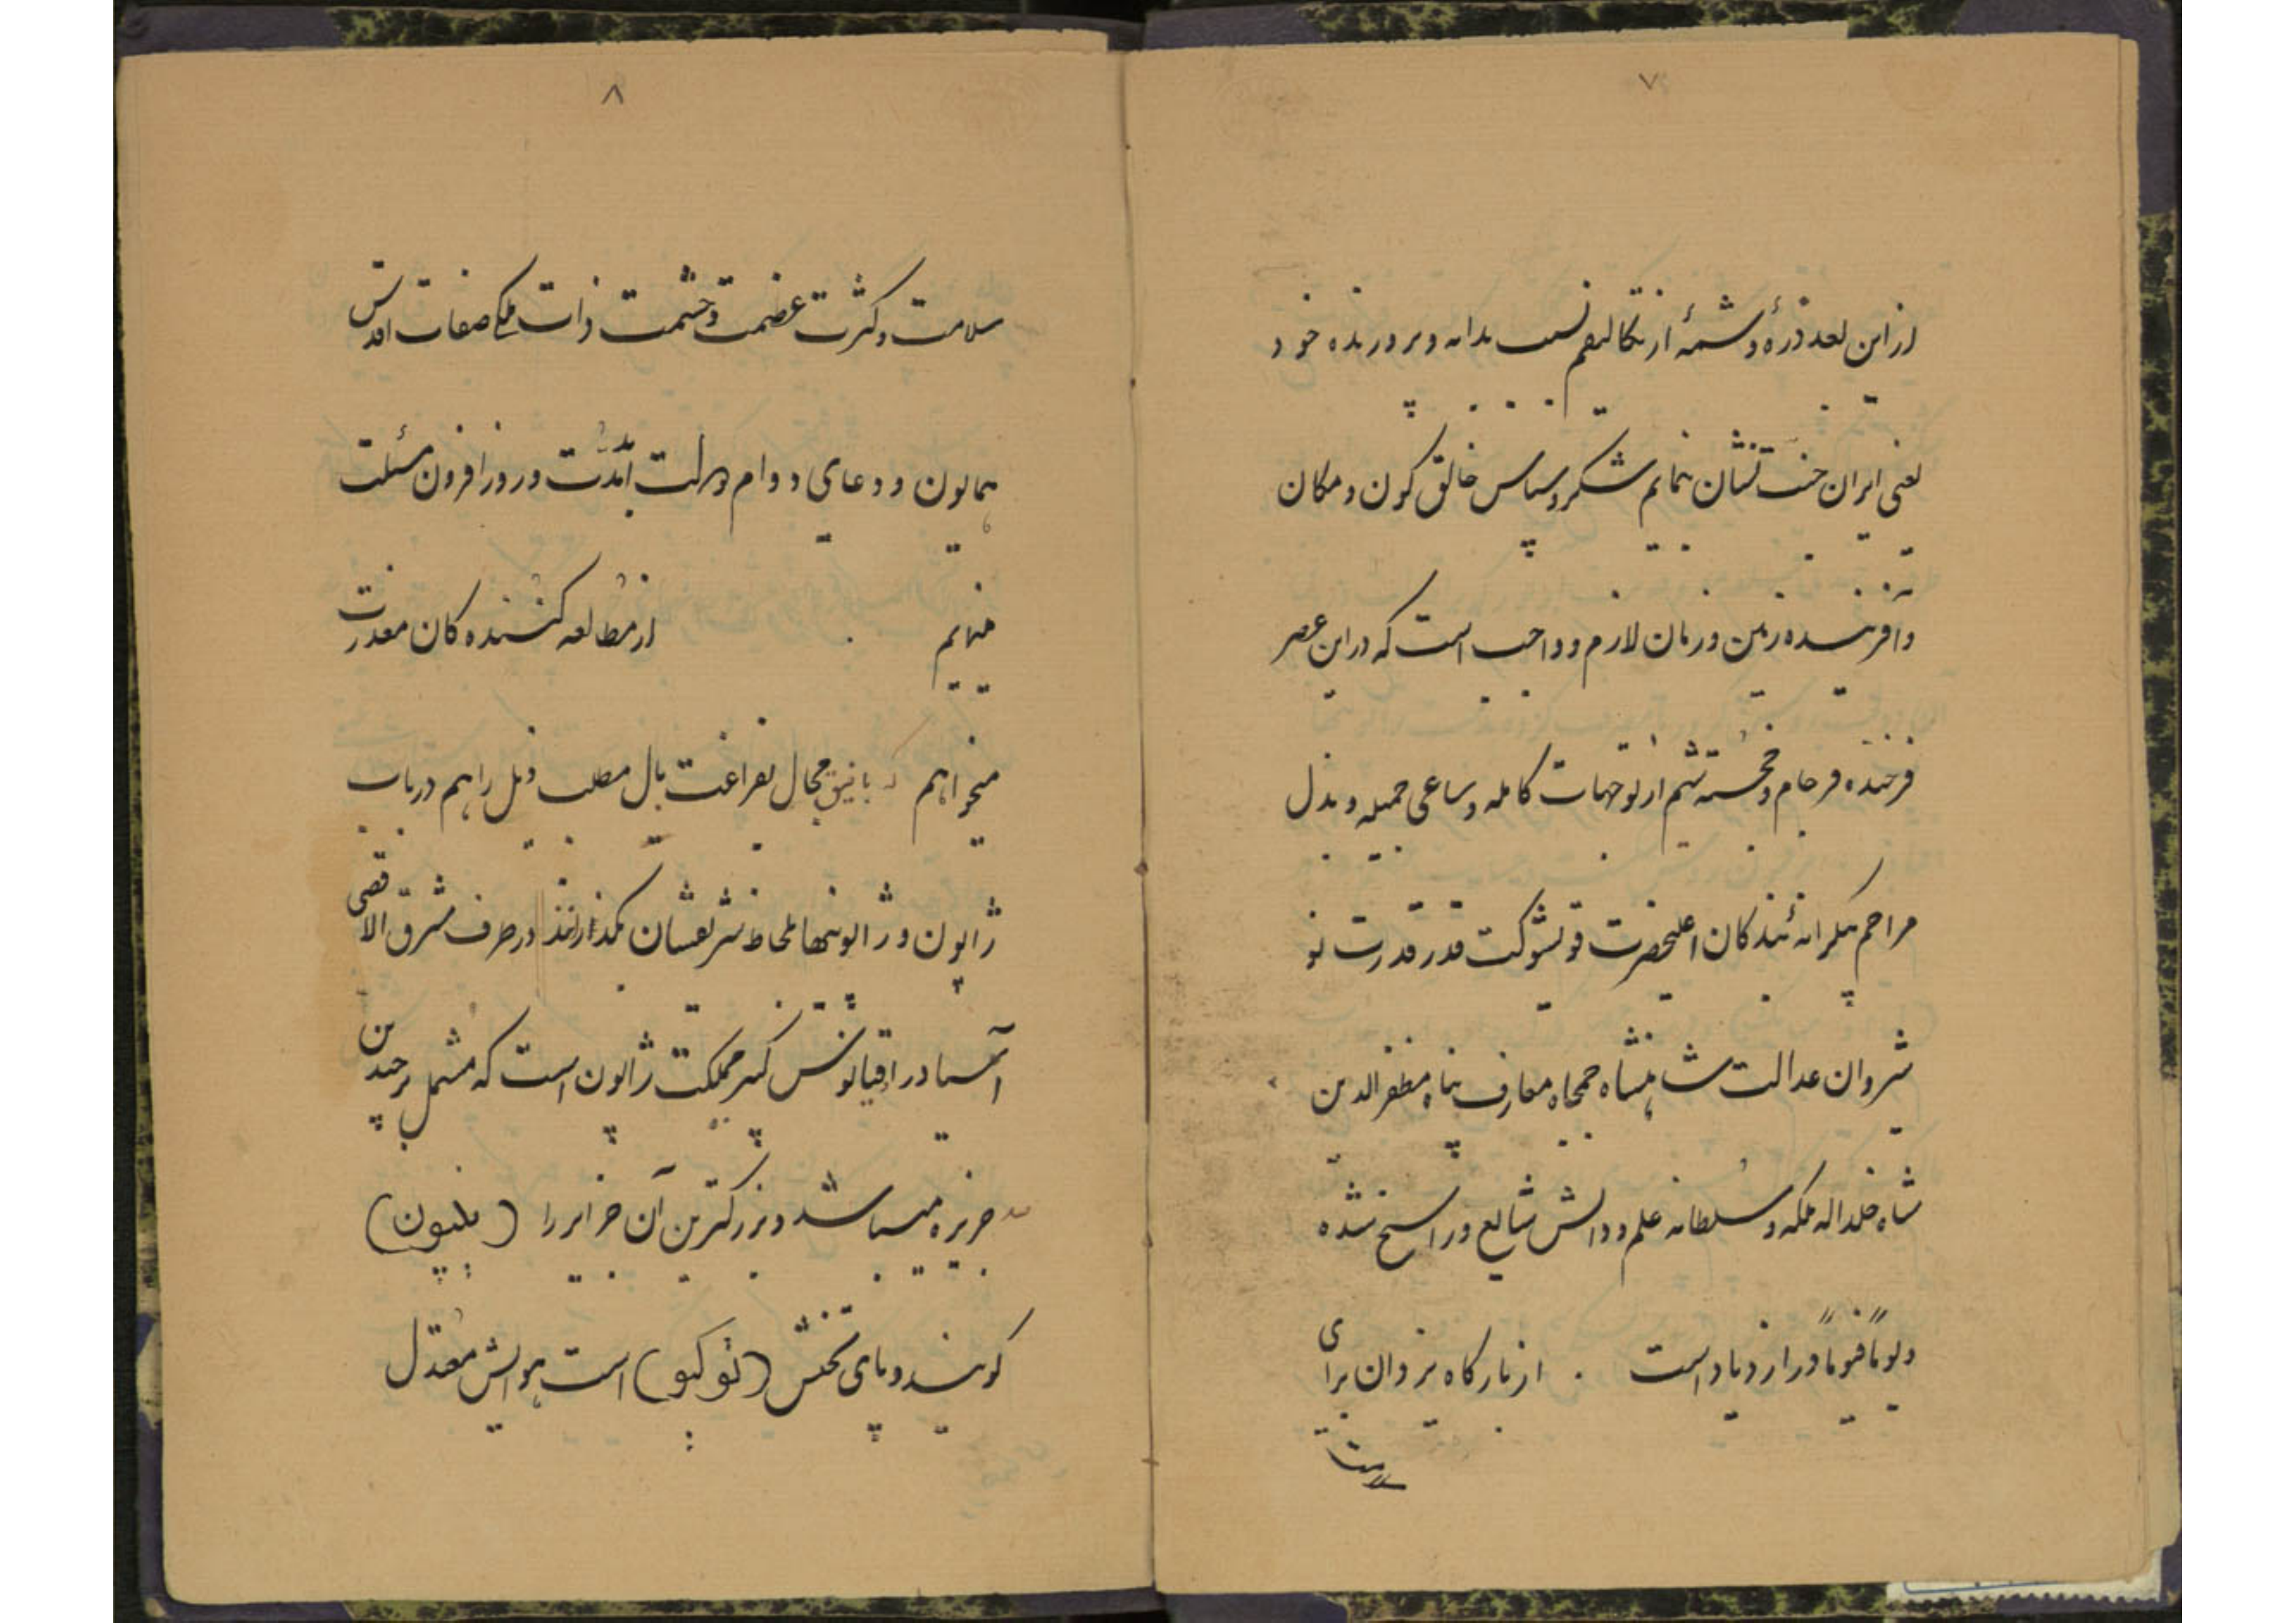 ۷
از این بعد ذرهٔ و شمهٔ از تکالیفم نسبت بدایه و پرورنده خود
یعنی ایران جنت نشان نمایم شکر و سپاس خالق کون و مکان
و آفریننده زمین و زمان لازم و واجب است که در این عصر
فرخنده فرجام و خجسته شیم از توجهات کامله و مساعی جمیله و بذل
مراحم بیکرانه بندکان اعلیحضرت قویشوکت قدر قدرت نو
شیروان عدالت شاهنشاه جمجاه معارف پناه مظفرالدین
شاه خلد اله ملکه و سلطانه علم و دانش شایع و راسخ شده
و یوماً فیوماً در ازدیاد است . از بارکاه یزدان برای
سلامت
۸
سلامت و کثرت عضمت و حشمت ذات ملکی صفات اقدس
همایون و دعای دوام دولت ابدمدت و روزافزون مسئلت
مینمایم . از مطالعه کننده کان معذرت
میخواهم که باین مجال بفراغت بال مطلب ذیل را هم در باب
ژاپون و ژاپونیها بلحاظ شریفشان بکذرانند در طرف مشرق الاقصی
آسیا در اقیانوس کبیر مملکت ژاپون است که مشتمل بر چندین
صد جزیره میباشد و بزرکترین آن جزایر را (نیپون)
کویند و پای تختش (توکیو) است هوایش معتدل